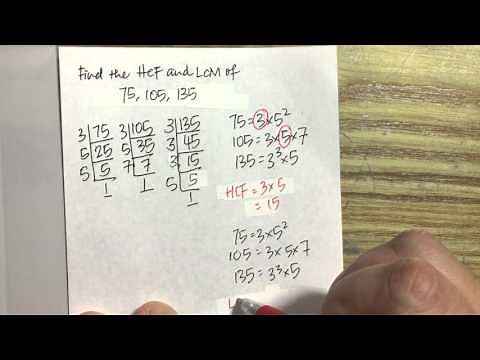 Find the HCF and LCM of
75, 105, 135
3 75 3 105 3 135
5 25 5 35 3 45
5 5 7 7 3 15
1 1 5 5
1
75 = 3 × 5²
105 = 3 × 5 × 7
135 = 3³ × 5
HCF = 3 × 5
= 15
75 = 3 × 5²
105 = 3 × 5 × 7
135 = 3³ × 5
L